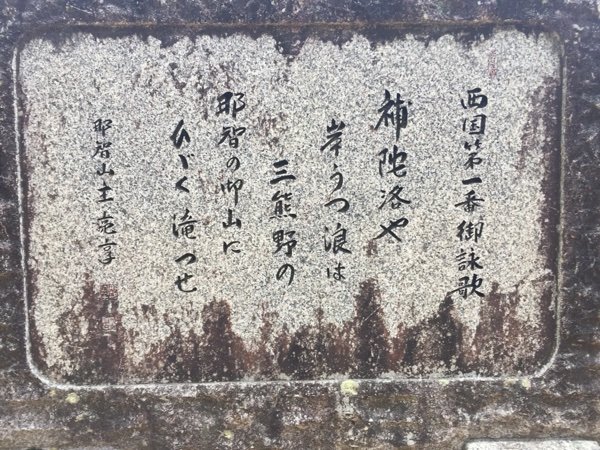 西国第一番御詠歌
補陀洛や
岸うつ浪は
三熊野の
那智の御山に
ひゞく滝つせ
那智山主亮享